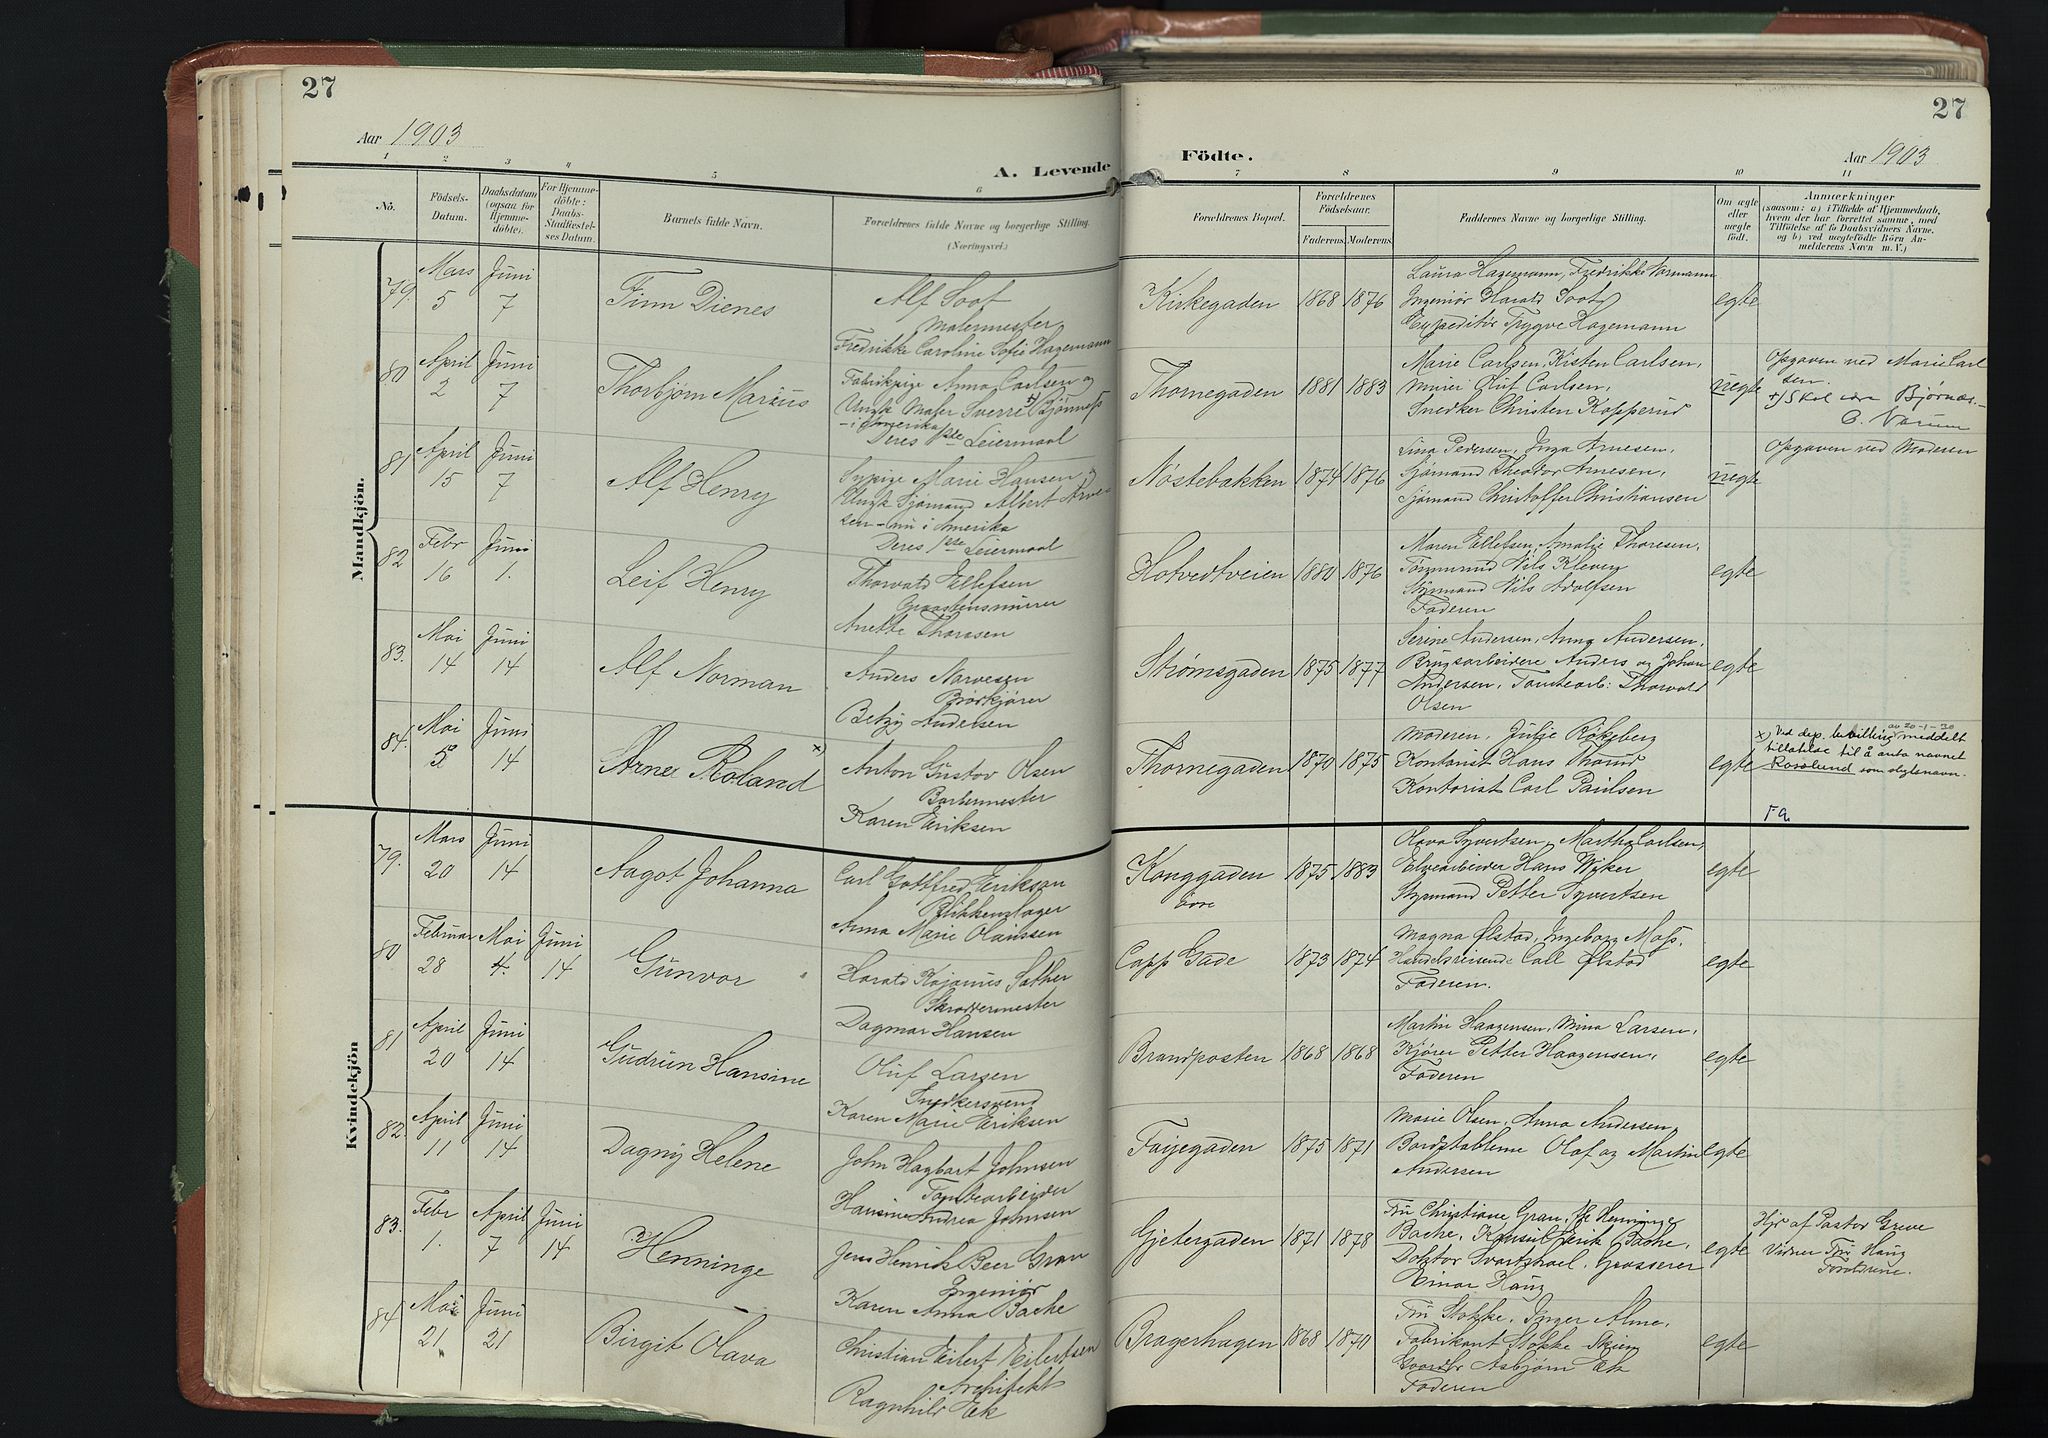 27
Aar 1903
A. Levende
1 2 3 4 5 6
No.
Födsels-
Datum.
Daabsdatum
(ogsaa for
Hjemme-
döbte).
For Hjemme-
döbte:
Daabs-
Stadfæstel-
ses Datum.
Barnets fulde Navn.
Forældrenes fulde Navne og borgerlige Stilling.
(Næringsvei.)
Mandkjön.
79. Mars 5 Juni 7 Finn Dienes
Alf Soot
Malermester
Fredrikke Caroline Sofie Hagemann
80 April 2 Juni 7 Thorbjørn Marius
Fabrikpige Anna Carlsen og
Ungk. Maler Sverre Bjønnes
- i Amerika
Deres 1ste Leiermaal
81 April 15 Juni 7 Alf Henry
Sypige Marie Hansen og
Ungk Sjømand Albert Arne-
sen - nu i Amerika
Deres 1ste Leiermaal
82 Febr 16 Juni 1. Leif Henry
Thorvald Ellefsen
Graastensmurer
Anette Thoresen
83. Mai 14 Juni 14 Alf Norman
Anders Narvesen
Brödkjører
Betzy Andersen
84. Mai 5 Juni 14 Arne Roland x)
Anton Gustav Olsen
Barbermester
Karen Eriksen
Kvindekjön
79. Mars 20 Juni 14 Aagot Johanna
Carl Gottfred Erikson
Blikkenslager
Anna Marie Olaussen
80 Februar 28 Mai 4. Juni 14 Gunvor
Harald Sather
Skræddermester
Dagmar Hansen
81 April 20 Juni 14 Gudrun Hansine
Oluf Larsen
Snedkersvend
Karen Marie Eriksen
82 April 11 Juni 14 Dagny Helene
John Hagbart Johnsen
Tomtearbeider
Hansine Andrea Johnsen
83. Febr 1. April 7 Juni 14 Henninge
Jens Henrik Beer Gran
Ingeniør
Karen Anna Bache
84 Mai 21. Juni 21 Birgit Olava
Christian Eilert Eilertsen
Architekt
Ragnhild Ek
27
Födte.
Aar 1903
7 8 9 10 11
Forældrenes Bopæl.
Forældrenes
Födselsaar.
Faderens. Moderens.
Faddernes Navne og borgerlige Stilling.
Om ægte
eller
uægte
født.
Anmærkninger
(saasom: a) i Tilfælde af Hjemmedaab,
hvem der har forrettet samme, med
Tilföielse af to Daabsvidners Navne,
og b) ved uægtefödte Börn An-
melderens Navn m. V.)
Kirkegaden 1868 1876
Laura Hagemann, Fredrikke Normann
Ingeniør Harald Soot,
Expeditør Trygve Hagemann
egte
Thornegaden 1881 1883
Marie Carlsen, Kirsten Carlsen,
Murer Oluf Carlsen,
Snedker Christen Kopperud
uegte
Opgaven ved Marie Carl
sen.
x) Skal være Bjørnæs.-
Nøstebakken 1874 1876
Lina Pedersen, Inga Arnesen,
Sjømand Theodor Arnesen,
Sjømand Christoffer Christiansen
uegte
Opgaven ved Moderen
Hotvedtveien 1880 1876
Maren Ellefsen, Amalie Thoresen,
Nils Kleven
Styrmand Nils Adolfsen
Faderen
egte
Strømsgaden 1875 1877
Serine Andersen, Anna Andersen,
Brugsarbeidere Anders og Johan
Andersen, Tomtearb: Thorvald
Olsen
egte
Thornegaden 1870 1875
Moderen, Julie Røkeberg
Kontorist Hans Thorud
Kontorist Carl Paulsen
egte
av 20-1-30
x) Ved dep. bevilling meddelt
tillatelse til å anta navnet
Roslund som slegtsnavn.
Konggaden
övre
1875 1883
Olava Syvertsen, Martha Carlsen,
Elvearbeider Hans Wiker
Styrmand Petter Syvertsen
egte
Capp. Gade 1873 1874
Magna Ølstad, Ingeborg Moss,
Handelsreisende Call Ølstad
Faderen.
egte
Brandposten 1868 1868
Martin Haagensen, Mina Larsen,
Kjører Petter Haagensen,
Faderen
egte
Faijegaden 1875 1871
Marie Olsen, Anna Andersen,
Bordstablerne Olaf og Martin
Andersen
egte
Gjetergaden 1871 1878
Fru Christiane Gran, Henninge
Bache, Konsul Erik Bache,
Doktor Svartzhoel, Grosserer
Einar Haug
egte
Hjd af Pastor Greve
Vidner Fru Haug
Forældrene.
Bragerhagen 1868 1870
Fru Stokke, Inger Alme,
Fabrikant Stokke Skien
Asbjørn Ek
Faderen
egte